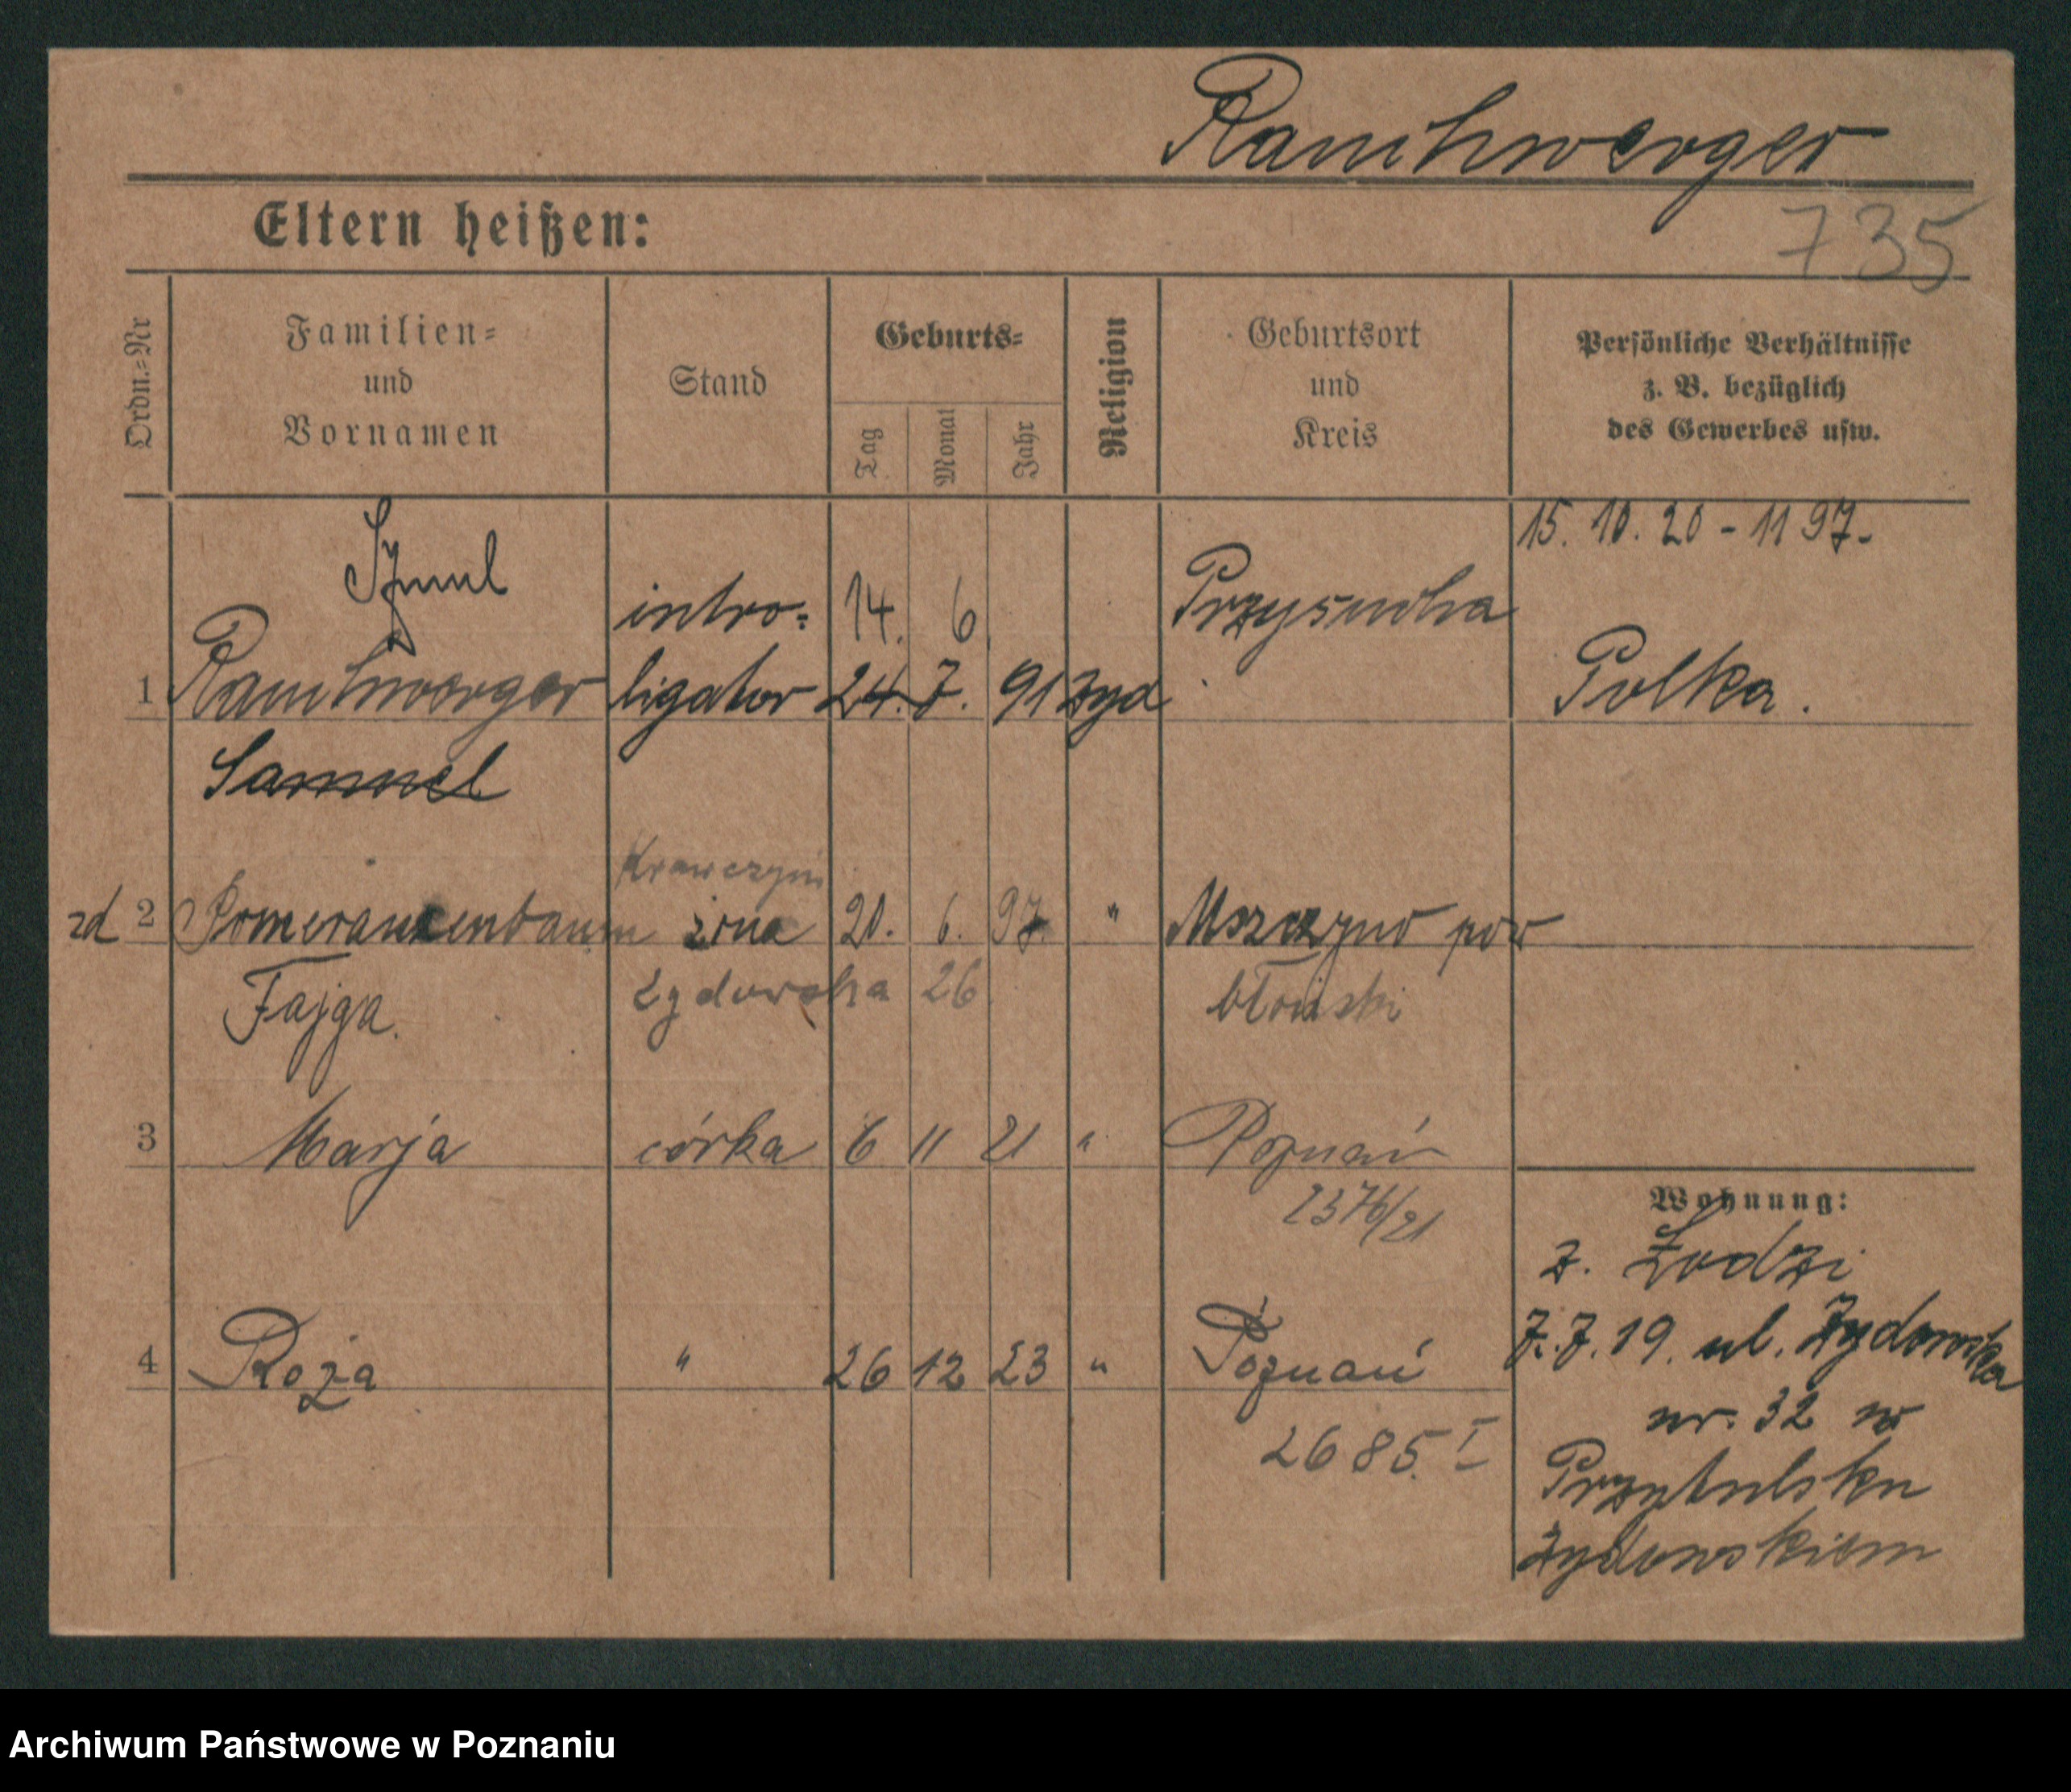 Rauchwerger
735
Eltern heißen:
Ordn.=Nr
Familien=
und
Vornamen
Stand
Geburts=
Tag
Monat
Jahr
Religion
Geburtsort
und
Kreis
Persönliche Verhältnisse
z. B. bezüglich
des Gewerbes usw.
15. 10. 20 - 11 97-
Szmul
intro= 14. 6. Przysucha
1 Rauchwerger ligator 24. 7. 91 żyd Polka.
Samuel
Krawczyni
zd 2 Pomeranzenbaum żona 20. 6. 97. " Mszczynó pow
Fajga. Żydowska 26 błoński
3 Marja córka 6 11 21 " Poznań
2376/21
Wohnung:
z. Łodzi
4 Roża " 26 12 23 " Poznań
7.7.19. ul. Żydowska
nr. 32 w
2685. I
Przytulsku
żydowskiem
Archiwum Państwowe w Poznaniu